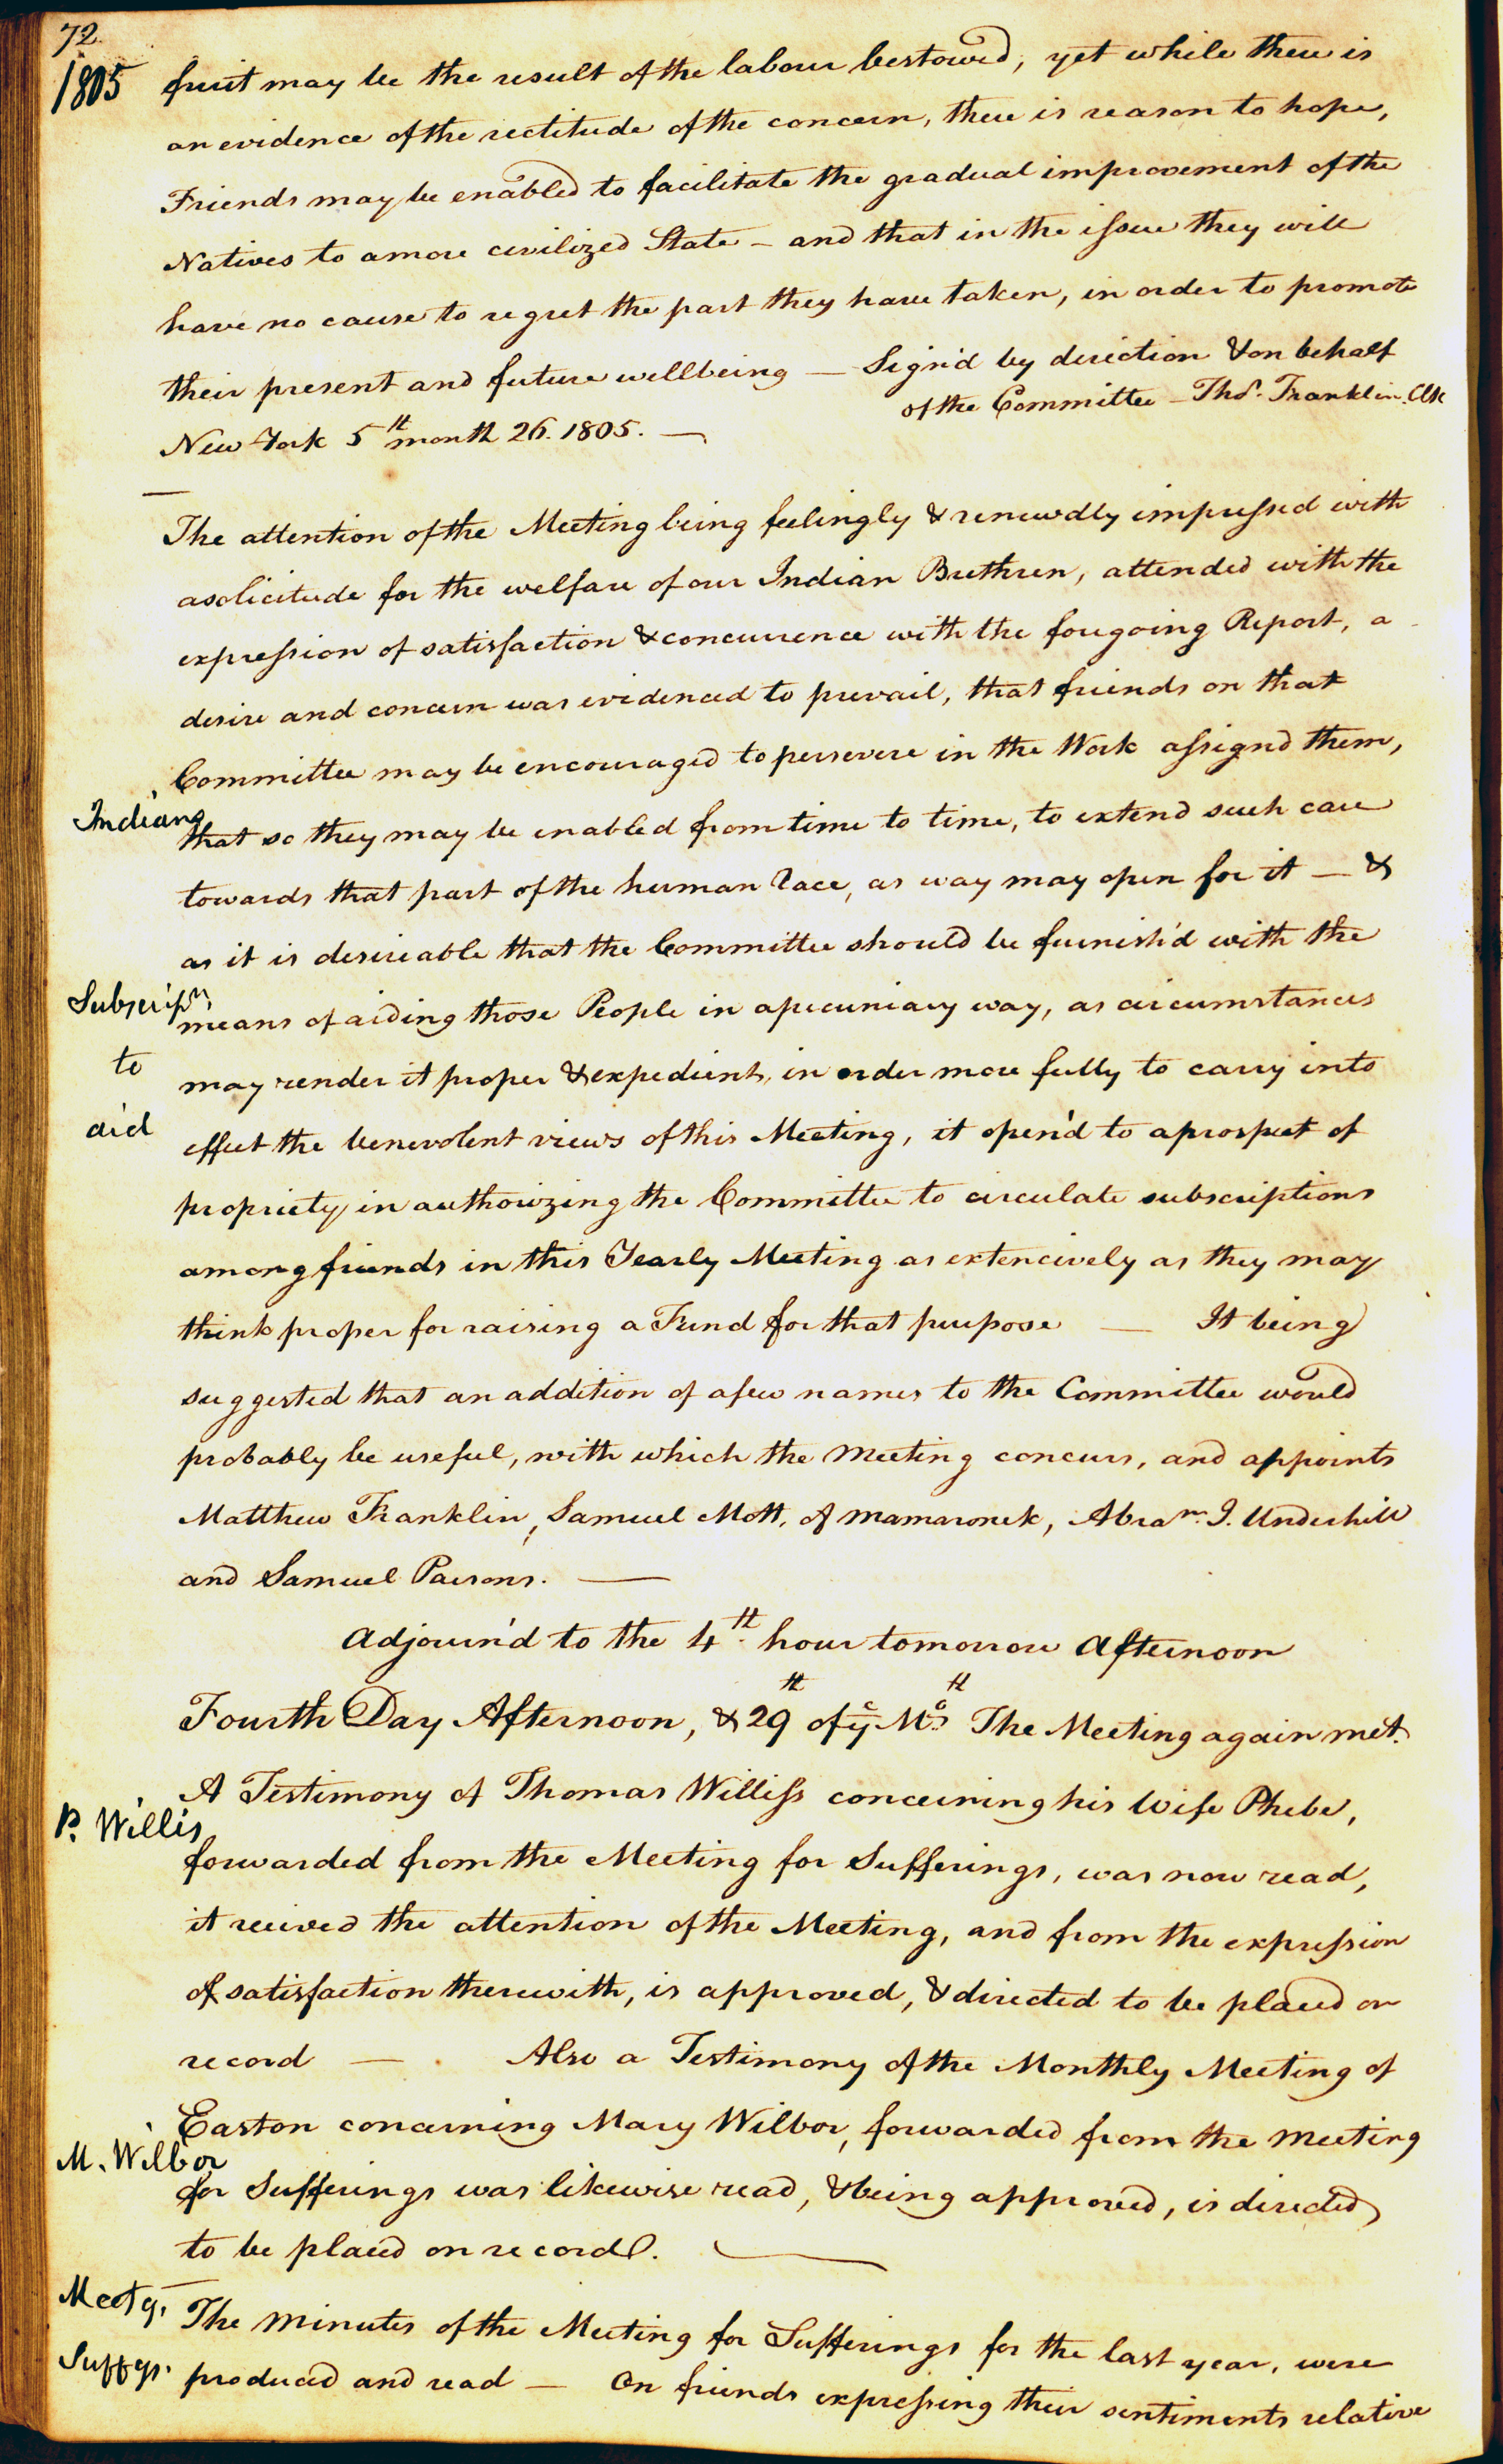 72.
1805
fruit may be the result of the labour bestowed, yet while there is
an evidence of the rectitude of the concern, there is reason to hope,
Friends may be enabled to facilitate the gradual improvement of the
Natives to a more civilized State – and that in the issue they will
have no cause to regret the part they have taken, in order to promote
their present and future wellbeing — Sign'd by direction & on behalf
of the Committee – Thos. Franklin. Clk
New York 5th month 26. 1805. —
The attention of the Meeting being feelingly & renewdly impressed with
a solicitude for the welfare of our Indian Brethren, attended with the
expression of satisfaction & concurrence with the foregoing Report, a
desire and concern was evidenced to prevail, that friends on that
Committee may be encouraged to persevere in the Work assign'd them,
Indians
that so they may be enabled from time to time, to extend such care
towards that part of the human Race, as way may open for it — &
as it is desireable that the Committee should be furnish'd with the
Subscripn
means of aiding those People in a pecuniary way, as circumstances
to
may render it proper & expedient, in order more fully to carry into
aid
effect the benevolent views of this Meeting, it open'd to a prospect of
propriety in authorizing the Committee to circulate subscriptions
among friends in this Yearly Meeting as extencively as they may
think proper for raising a Fund for that purpose — It being
suggested that an addition of a few names to the Committee would
probably be useful, with which the Meeting concurs, and appoints
Matthew Franklin, Samuel Mott, of Mamaronek, Abram. I. Underhill
and Samuel Parsons. —
Adjourn'd to the 4th hour tomorrow Afternoon
Fourth Day Afternoon, & 29th of ye Moth The Meeting again met.
A Testimony of Thomas Williss concerning his Wife Phebe,
P. Willis
forwarded from the Meeting for Sufferings, was now read,
it received the attention of the Meeting, and from the expression
of satisfaction therewith, is approved, & directed to be placed on
record — Also a Testimony of the Monthly Meeting of
Easton concerning Mary Wilbor, forwarded from the Meeting
M. Wilbor
for Sufferings was likewise read, & being approved, is directed
to be placed on record. —
Meetg.
The Minutes of the Meeting for Sufferings for the last year, were
Suffgs.
produced and read — On friends expressing their sentiments relative